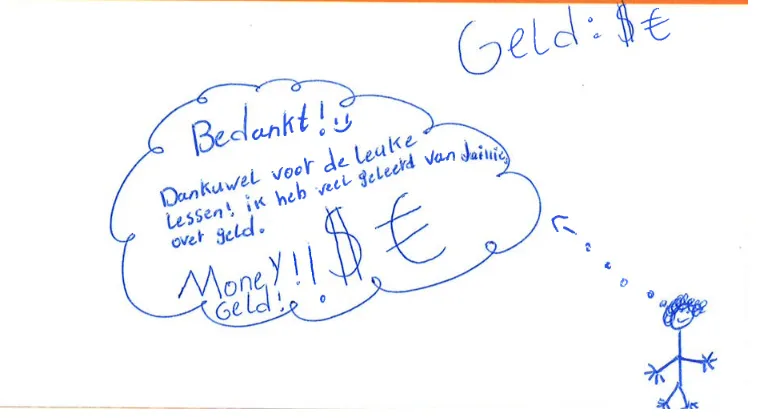 Geld: $ €
Bedankt! :)
Dankuwel voor de leuke
lessen! ik heb veel geleerd van jullie
over geld.
Money!! $ €
Geld!!